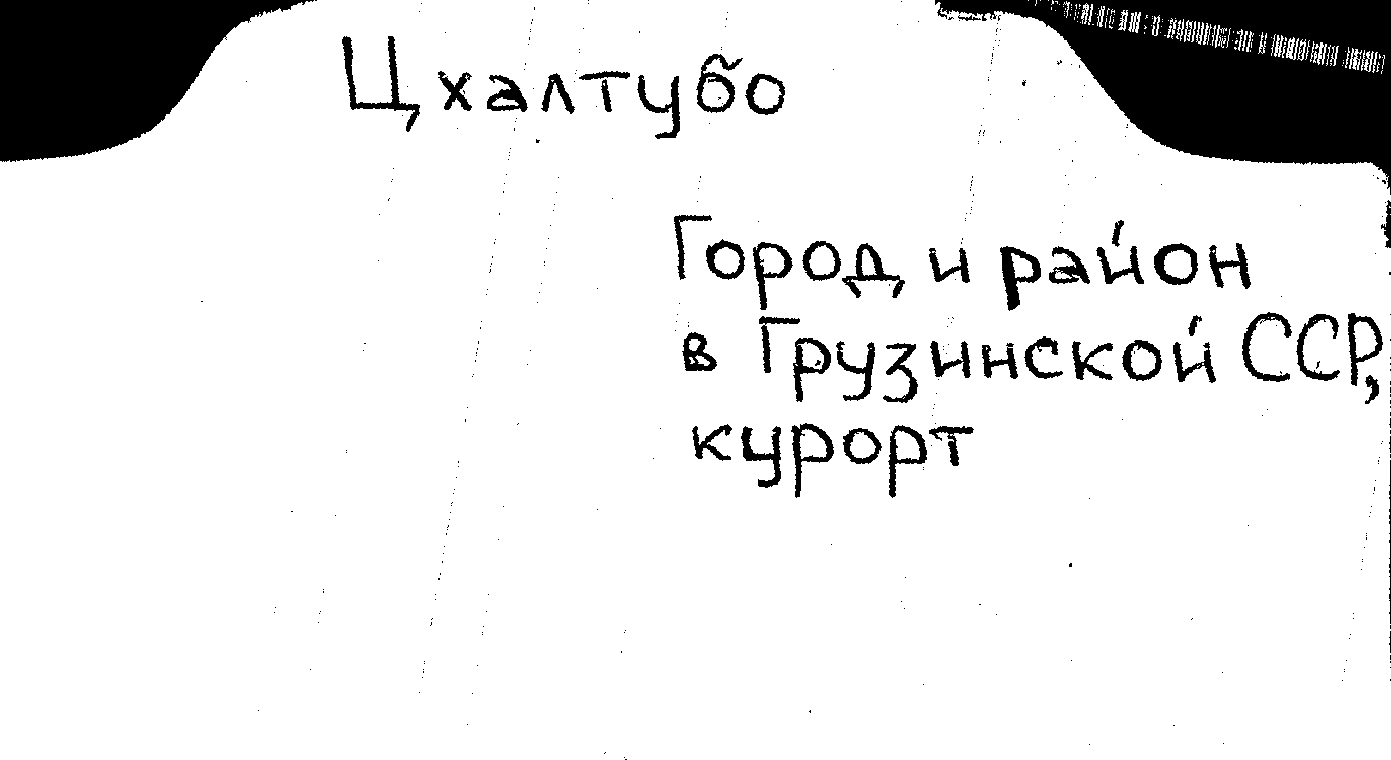 Цхалтубо
Город и район
в Грузинской ССР,
курорт